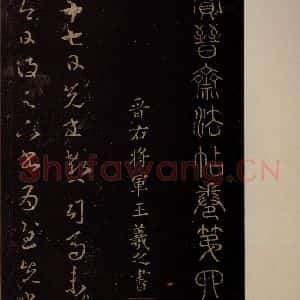 寶晉齋法帖卷第四
晉右將軍王羲之書
十七日先書郗司馬未
即日得足下書為慰先
Shufawang.CN